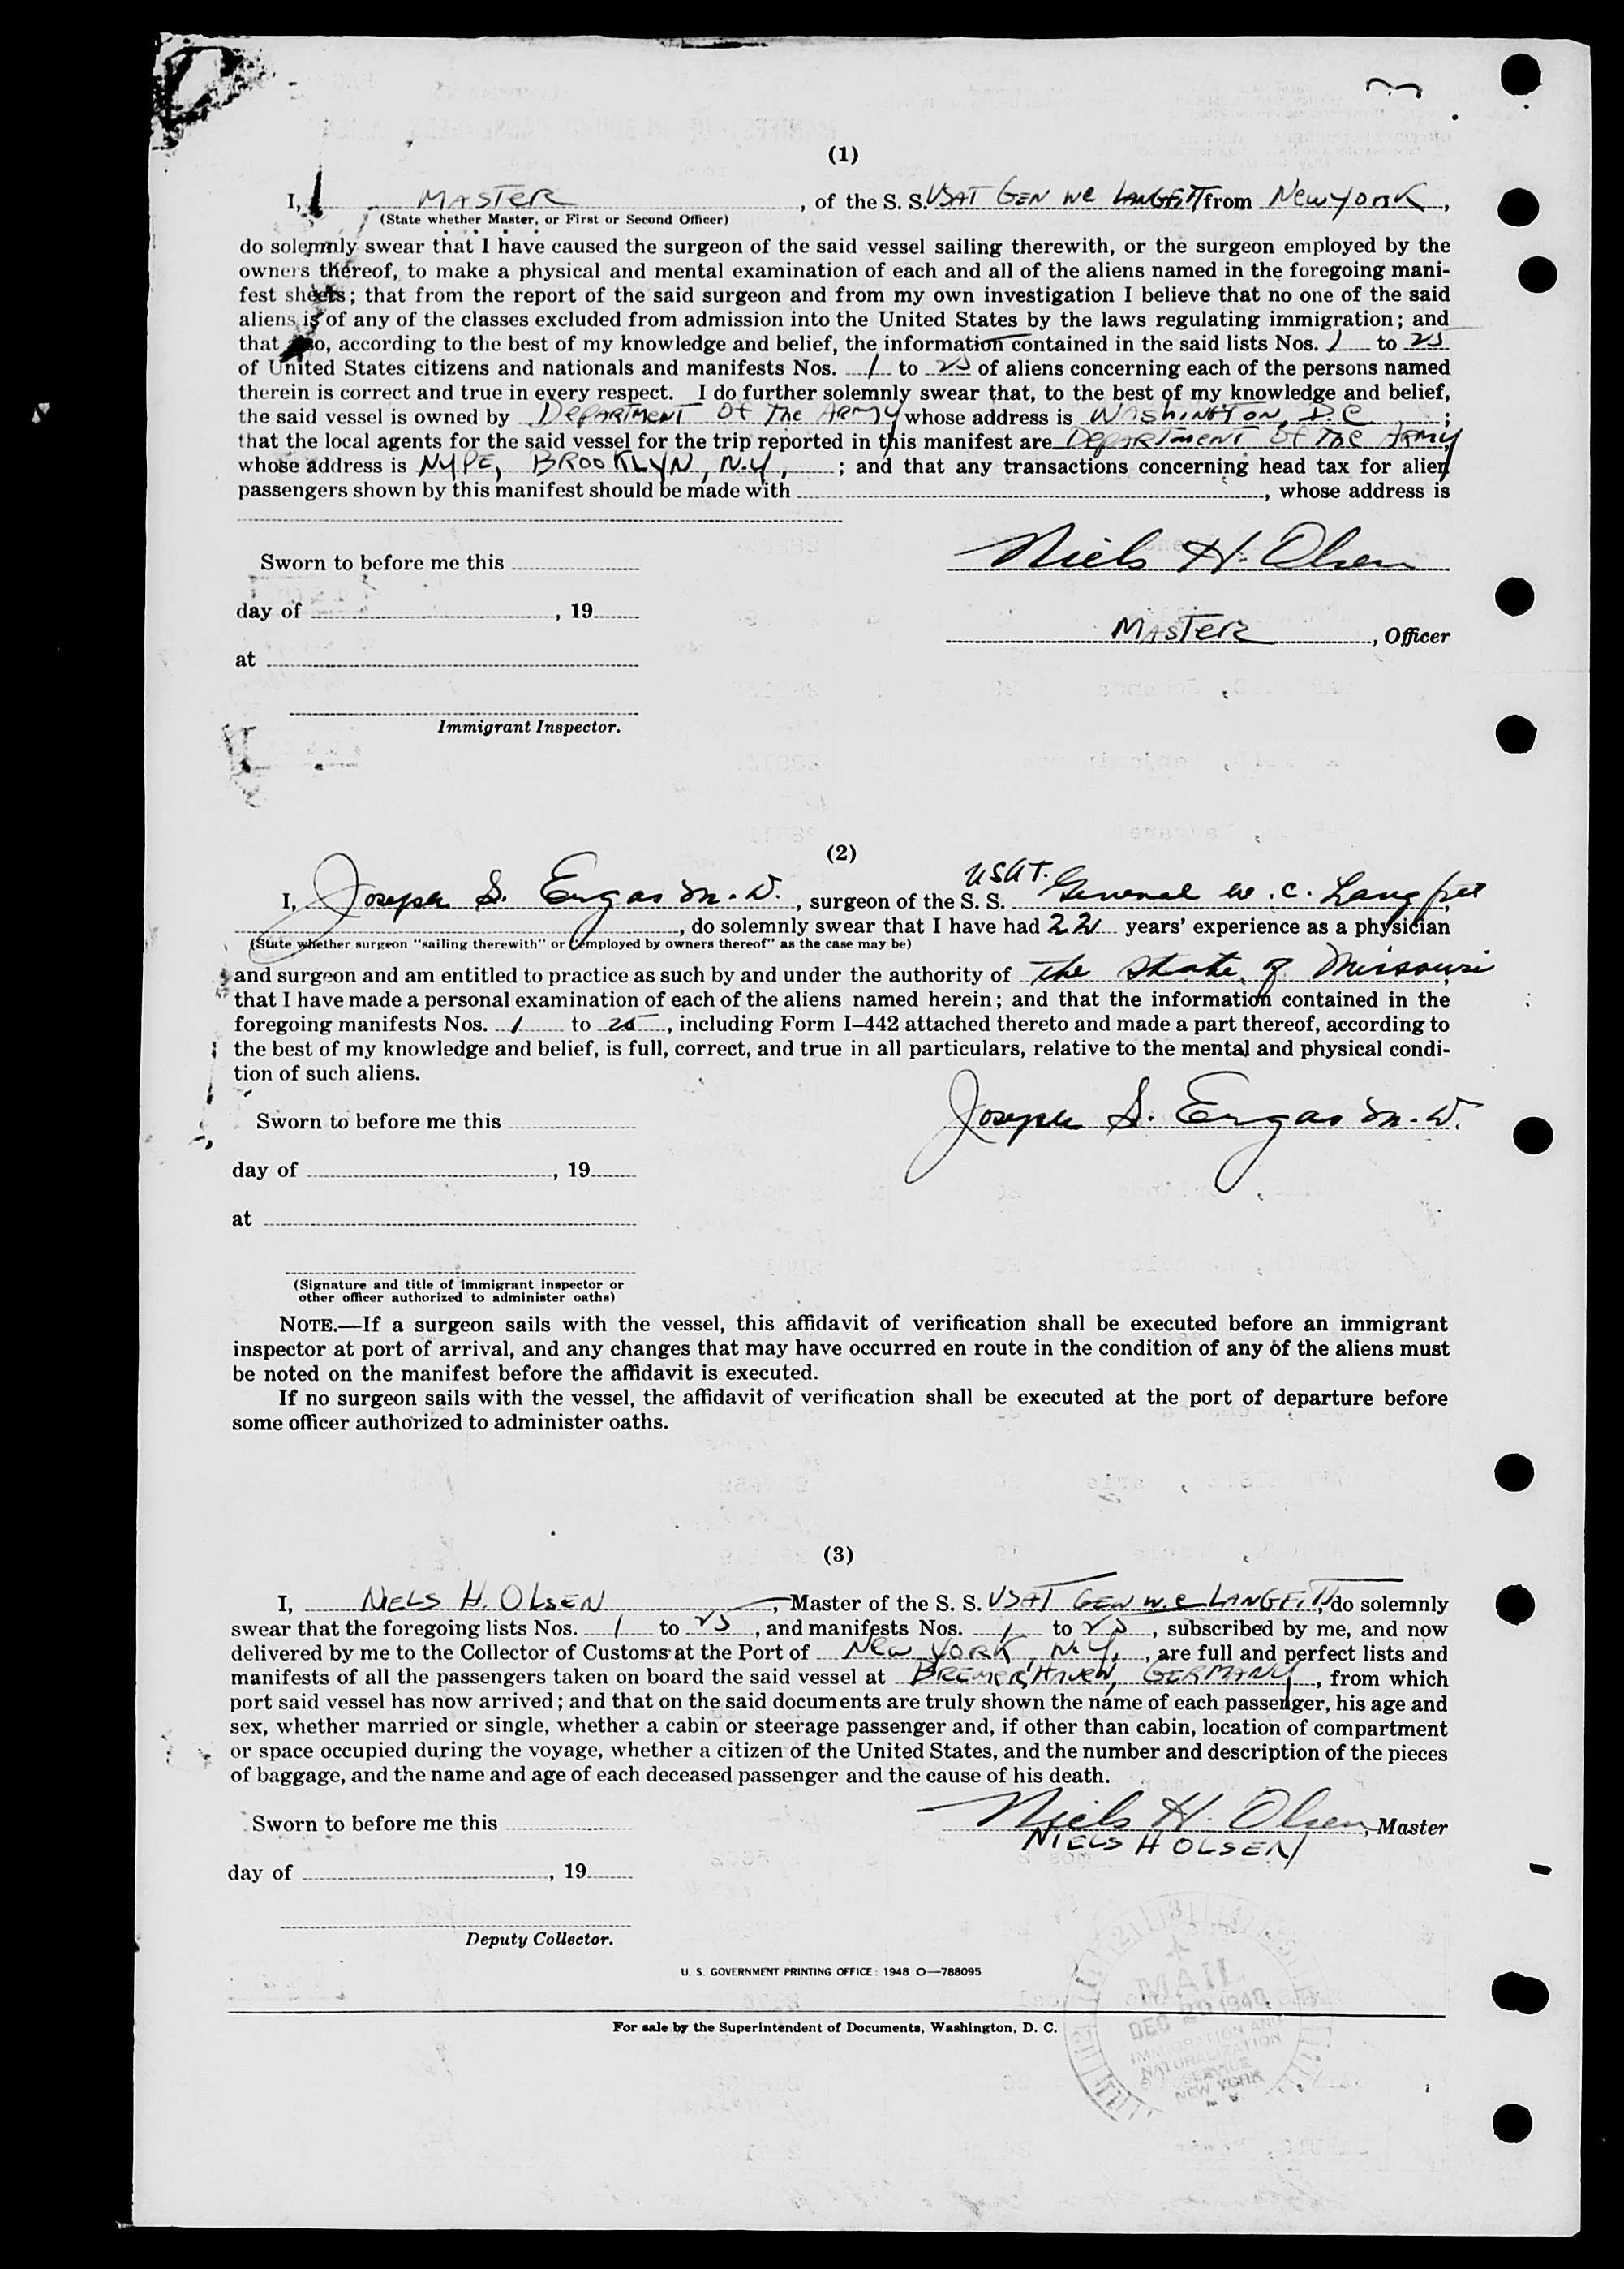 (1)
I, MASTER, of the S. S. USAT GEN WC LANGFITT from New York,
(State whether Master, or First or Second Officer)
do solemnly swear that I have caused the surgeon of the said vessel sailing therewith, or the surgeon employed by the
owners thereof, to make a physical and mental examination of each and all of the aliens named in the foregoing mani-
fest sheets; that from the report of the said surgeon and from my own investigation I believe that no one of the said
aliens is of any of the classes excluded from admission into the United States by the laws regulating immigration; and
that also, according to the best of my knowledge and belief, the information contained in the said lists Nos. 1 to 25
of United States citizens and nationals and manifests Nos. 1 to 25 of aliens concerning each of the persons named
therein is correct and true in every respect. I do further solemnly swear that, to the best of my knowledge and belief,
the said vessel is owned by Department Of The Army whose address is WAShINGTON, D.C ;
that the local agents for the said vessel for the trip reported in this manifest are Department Of The Army
whose address is NYPE, BROOKLYN, N.Y, ; and that any transactions concerning head tax for alien
passengers shown by this manifest should be made with , whose address is
Niels H. Olsen
Sworn to before me this
day of , 19
MASTER, Officer
at
Immigrant Inspector.
(2)
I, Joseph S. Ergas M.D., surgeon of the S. S. USAT. General W. C. Langfitt
, do solemnly swear that I have had 22 years' experience as a physician
(State whether surgeon "sailing therewith" or "employed by owners thereof" as the case may be)
and surgeon and am entitled to practice as such by and under the authority of the State of Missouri,
that I have made a personal examination of each of the aliens named herein; and that the information contained in the
foregoing manifests Nos. 1 to 25, including Form I–442 attached thereto and made a part thereof, according to
the best of my knowledge and belief, is full, correct, and true in all particulars, relative to the mental and physical condi-
tion of such aliens.
Sworn to before me this
Joseph S. Ergas M.D.
day of , 19
at
(Signature and title of immigrant inspector or
other officer authorized to administer oaths)
NOTE.—If a surgeon sails with the vessel, this affidavit of verification shall be executed before an immigrant
inspector at port of arrival, and any changes that may have occurred en route in the condition of any of the aliens must
be noted on the manifest before the affidavit is executed.
If no surgeon sails with the vessel, the affidavit of verification shall be executed at the port of departure before
some officer authorized to administer oaths.
(3)
I, NIELS H. OLSEN, Master of the S. S. USAT GEN W.C LANGFITT, do solemnly
swear that the foregoing lists Nos. 1 to 25, and manifests Nos. 1 to 25, subscribed by me, and now
delivered by me to the Collector of Customs at the Port of New YORK, N.Y., are full and perfect lists and
manifests of all the passengers taken on board the said vessel at BREMERHAVEN, GERMANY, from which
port said vessel has now arrived; and that on the said documents are truly shown the name of each passenger, his age and
sex, whether married or single, whether a cabin or steerage passenger and, if other than cabin, location of compartment
or space occupied during the voyage, whether a citizen of the United States, and the number and description of the pieces
of baggage, and the name and age of each deceased passenger and the cause of his death.
Niels H. Olsen, Master
Sworn to before me this
NIELS H OLSEN
day of , 19
Deputy Collector.
U. S. GOVERNMENT PRINTING OFFICE: 1948 O—788095
For sale by the Superintendent of Documents, Washington, D. C.
MAIL
DEC 29 1948
IMMIGRATION AND
NATURALIZATION
SERVICE
NEW YORK
N. Y.